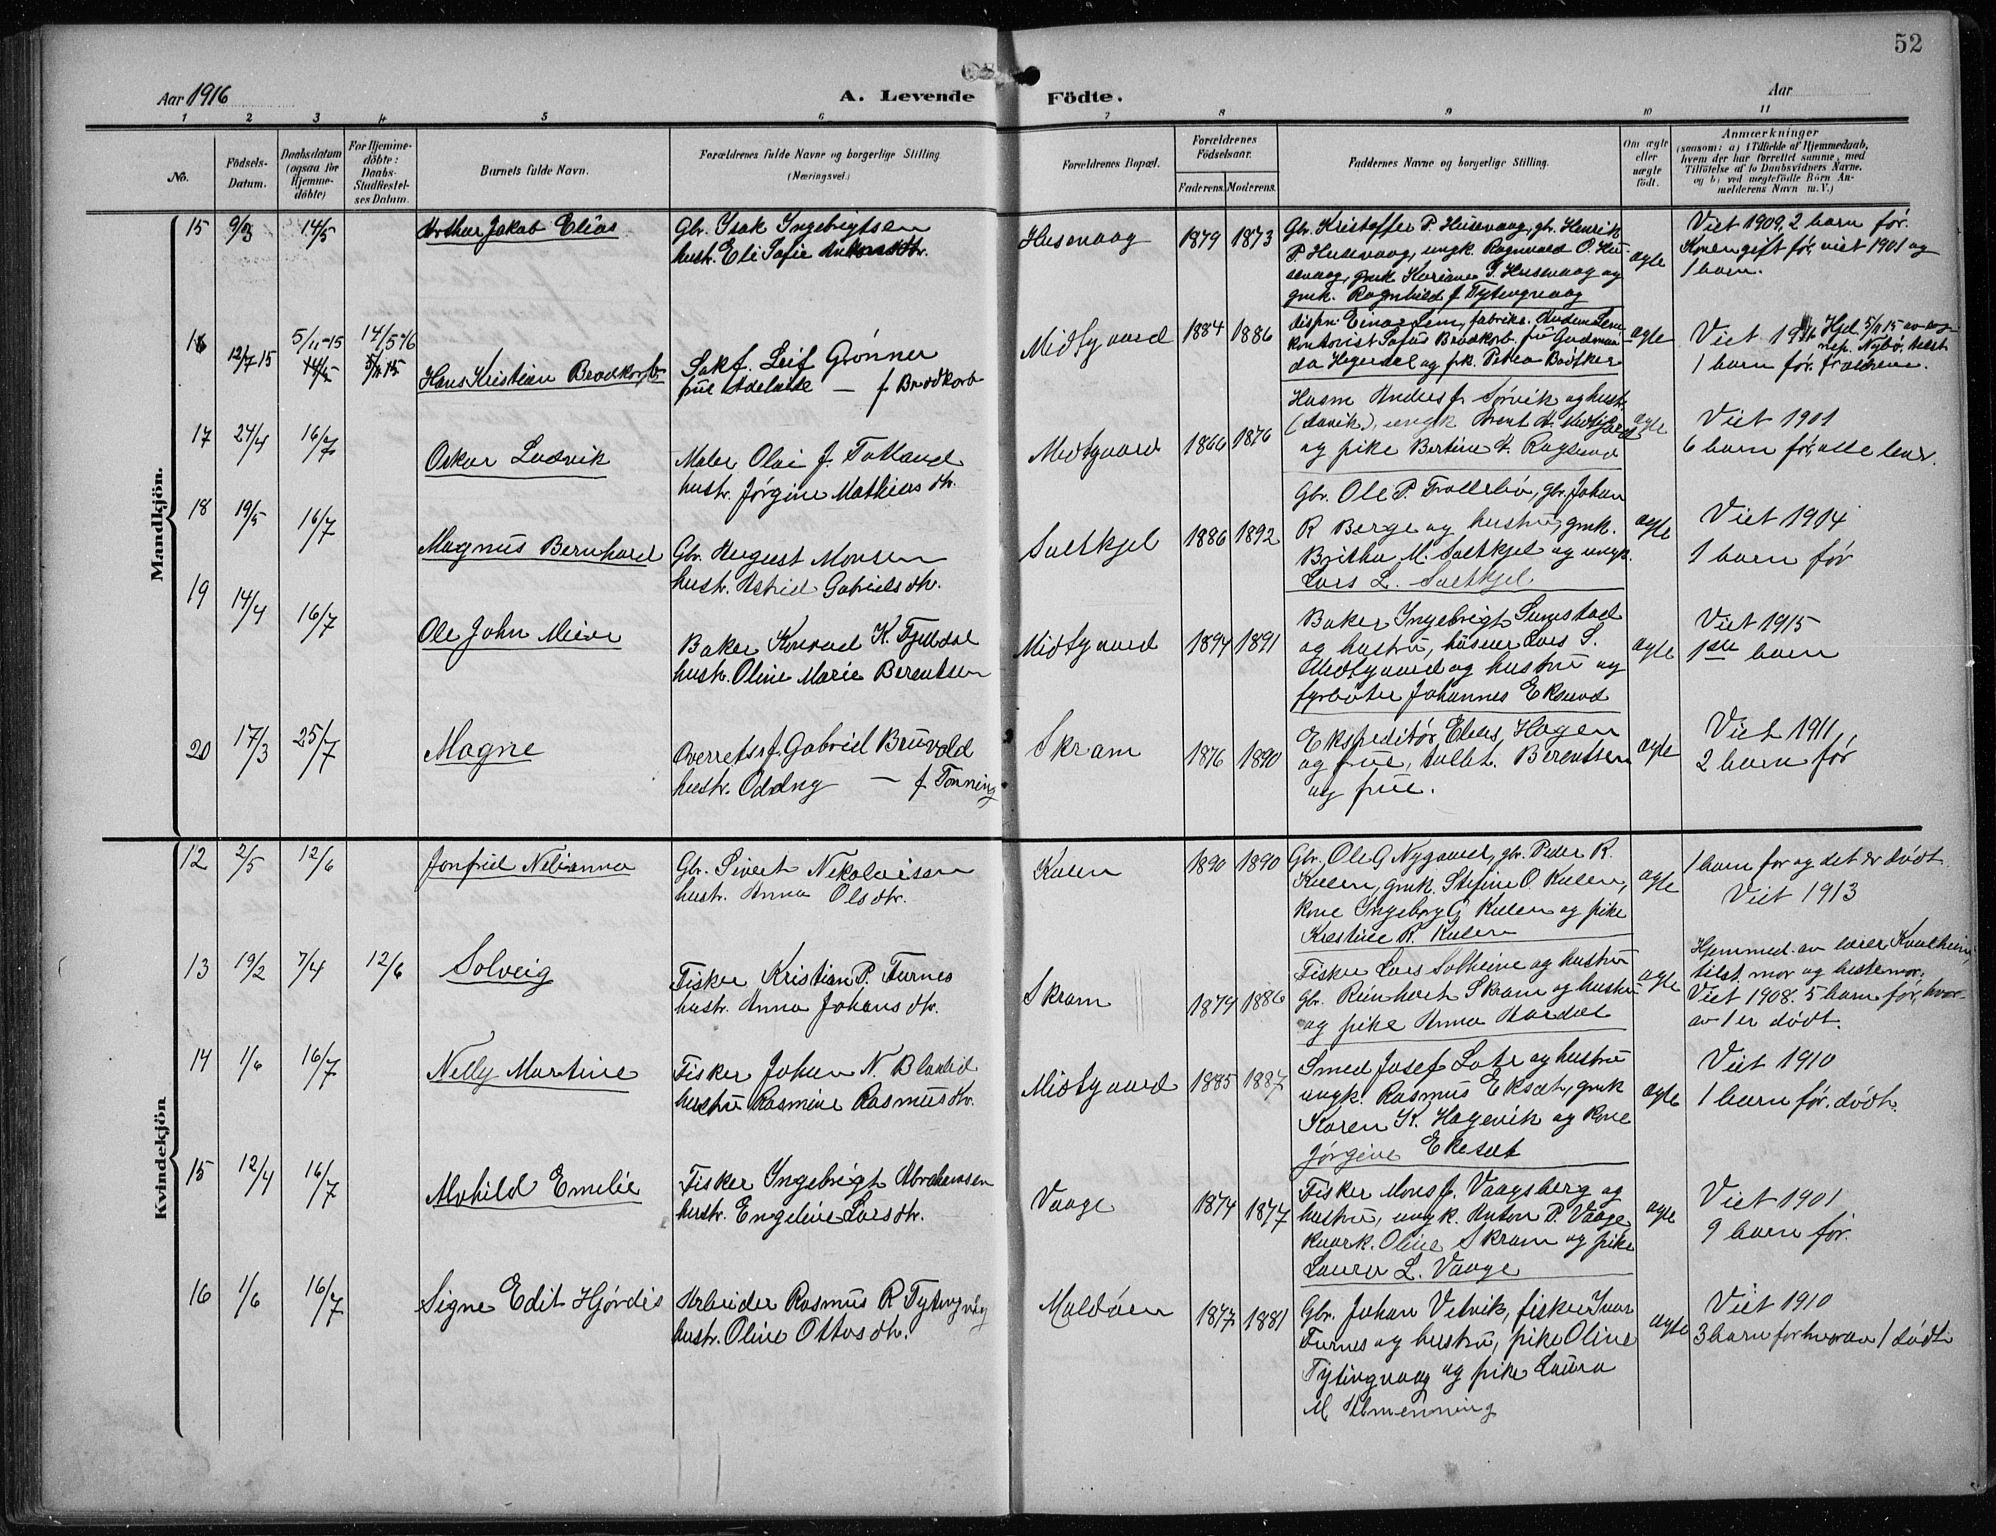 52
Aar 1916
A. Levende
Födte.
Aar
1 2 3 4 5 6 7 8 9 10 11
No.
Födsels-
Datum.
Daabsdatum
(ogsaa for
Hjemme-
döbte)
For Hjemme-
döbte:
Daabs-
Stadfæstel-
ses Datum.
Barnets fulde Navn.
Forældrenes fulde Navne og borgerlige Stilling
(Næringsvei.)
Forældrenes Bopæl.
Forældrenes
Födselsaar.
Faderens. Moderens.
Faddernes Navne og borgerlige Stilling.
Om ægte
eller
uægte
födt.
Anmærkninger
(saasom: a) i Tilfælde af Hjemmedaab,
hvem der har forrettet samme, med
Tilföielse af to Daabsvidners Navne.
og b) ved uægtefödte Börn An-
melderens Navn m. V.)
Mandkjön.
15 9/3 14/5 Arthur Jakob Elias
Gbr. Isak Ingebrigtsen
hustr. Eli Sofie Antonsdtr.
Husevaag 1879 1873
Gbr. Kristoffer P. Husevaag, gbr. Henrik
P. Husevaag, ungk. Ragnvald O. Hu-
sevaag, gmk. Kariane I. Husevaag og
gmk. Ragnhild f. Tytingvaag
ægte
Viet 1909, 2 barn før.
Konen gift før, viet 1901 og
1 barn.
16 12/7-15 5/11-15 14/5 16
14/5 5/11 15
Hans Kristian Brodkorb
Sakf. Leif Grønner
frue Adelaide — f Brodkorb
Midtgaard 1884 1886
disp. Einar Lem, fabrikk.
kontorist Sofus Brodkorb, fru Gudrun
og frk. Petra Bødtker
ægte
Viet Hjd. 5/11 15 av
Nybø, tilst
1 barn før. forældrene.
17 24/4 16/7 Oskar Ludvik
Maler Olai J. Totland
hustr. Jørgine Mathiasdtr.
Midtgaard 1866 1876
Husm Anders J. Sørvik og hust.
(Davik), ungk Brent A. Midtgaard
og pike Bertine A. Rugsund
ægte
Viet 1901
6 barn før, alle lever.
18 19/5 16/7 Magnus Bernhard
Gbr. August Monsen
hustr. Astrid Gabrielsdtr.
Saltkjel 1886 1892
Gbr. Ole P. Trollebø, gbr. Johan
R Berge og hustru, gmk.
Britha M. Saltkjel og ungk.
Lars L. Saltkjel
ægte
Viet 1914
1 barn før
19 14/4 16/7 Ole John Meier
Baker Konrad K. Fjelldal
hustr. Oline Marie Berentsen
Midtgaard 1894 1891
Baker Ingebrigt Sunnstad
og hustru, husmr Lars S.
Midtgaard og hustru og
fyrbøter Johannes Eksund
ægte
Viet 1915
1ste barn
20 17/3 25/7 Magne
Overretssf. Gabriel Bruvold
hustr. Oddny — f Tonning
Skram 1876 1890
Ekspeditør Elias Hagen
og frue, tollbt. Berentsen
og frue.
ægte
Viet 1911
2 barn før
Kvindekjön
12 2/5 12/6 Jonfrid Nelianna
Gbr. Sivert Nikolaisen
hustr. Anna Olsdtr.
Kulen 1890 1890
Gbr. Ole G Nygaard, gbr. Peder R.
Kulen, gmk. Stefine O. Kulen,
kone Ingeborg G Kulen og pike
Kristine R. Kulen
ægte
1 barn før og det er dødt.
Viet 1913
13 19/2 7/4 12/6 Solveig
Fisker Kristian P. Furnes
hustr. Anna Johansdtr.
Skram 1879 1886
Fisker Lars Solheim og hustru
gbr. Reinhart Skram og hustru
og pike Anna Hardal
ægte
Hjemmed. av lærer Kvalheim,
tilst. mor og bestemor.
Viet 1908. 5 barn før, hvor-
av 1 er dødt.
14 1/6 16/7 Nelly Martine
Fisker Johan N. Blålid
hustru Rasmine Rasmusdtr.
Midtgaard 1885 1887
Smed Josef Lote og hustru
ungk. Rasmus Eksæt, gmk
Karen K. Hagevik og kone
Jørgine Ekesæt
ægte
Viet 1910
1 barn før. dødt.
15 12/4 16/7 Alvhild Emelie
Fisker Ingebrigt Abrahamsen
hustr. Engeline Larsdtr.
Vaage 1874 1877
Fisker Mons J. Vaagsberg og
hustru, ungk. Anton P. Vaage
kvark. Oline Skram og pike
Laura L. Vaage
ægte
Viet 1901
9 barn før.
16 1/6 16/7 Signe Edit Hjørdis
Arbeider Rasmus R Tytingvåg
hustr. Oline Ottosdtr.
Maldøen 1877 1881
Gbr. Johan Vetvik, fisker Ivar
Furnes og hustru, pike Oline
Tytingvaag og pike Laura
M Almenning
ægte
Viet 1910
3 barn før hvorav 1 dødt